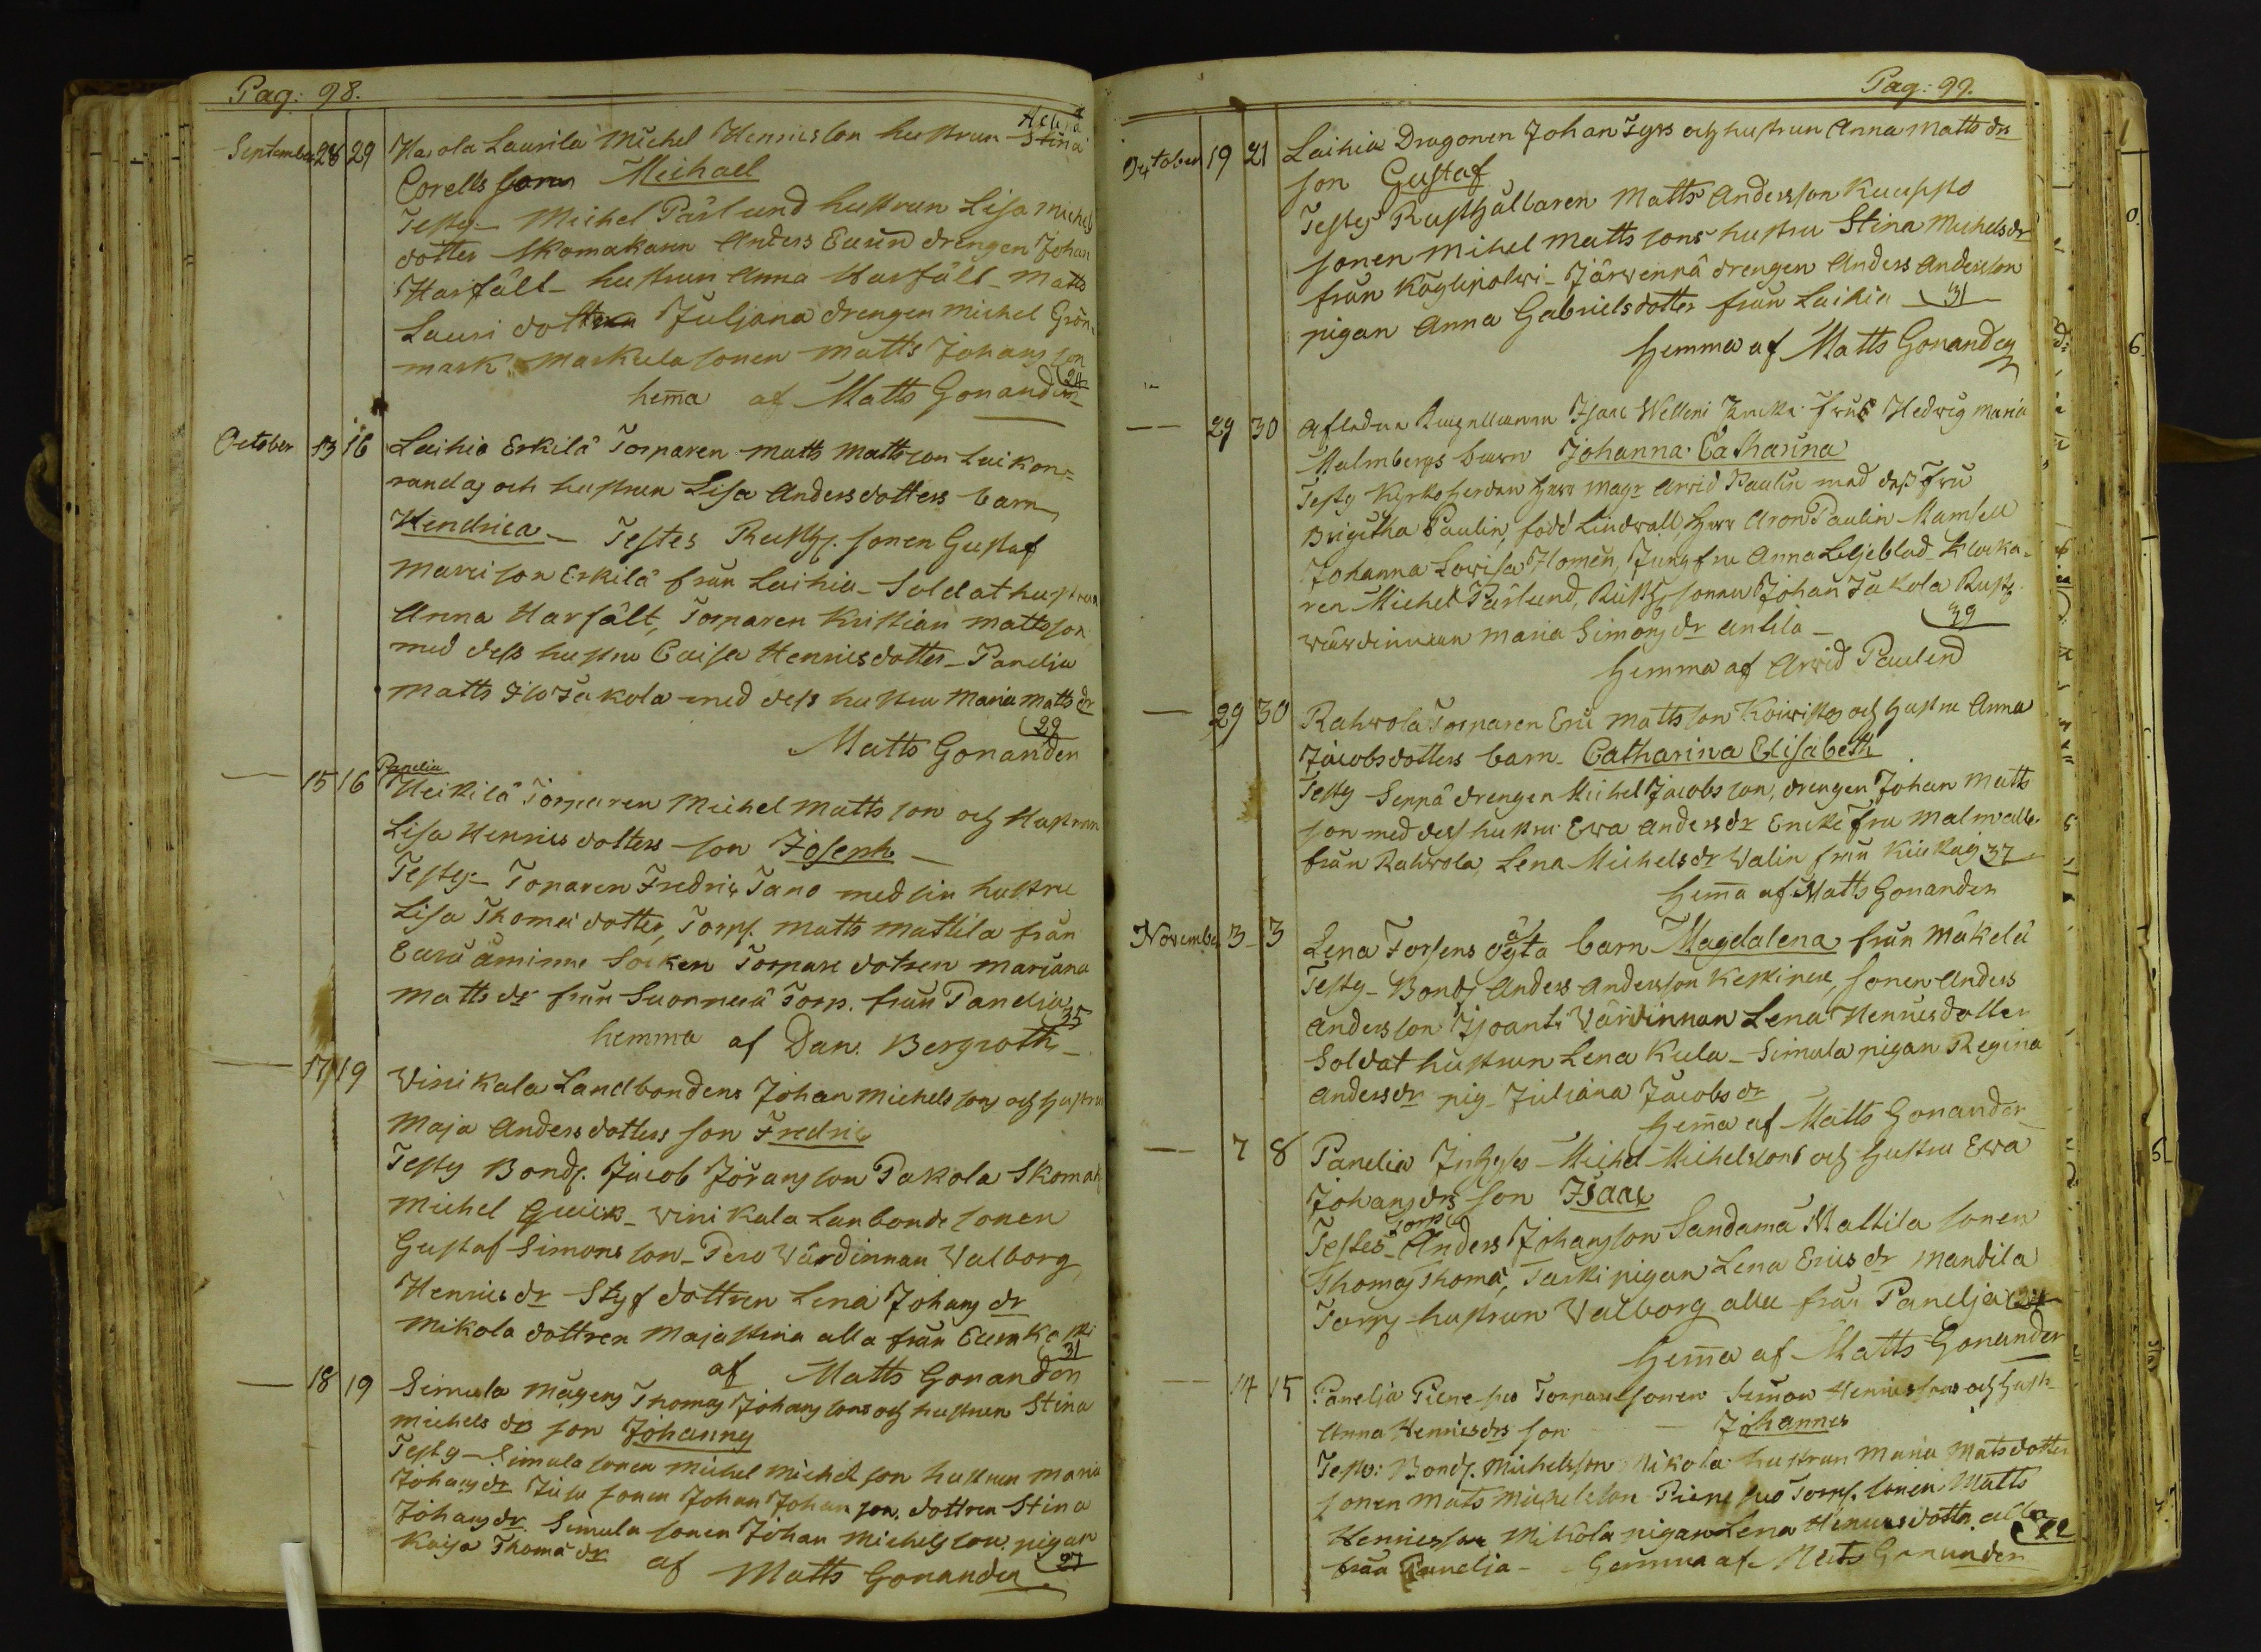 Pag: 98.
September 28 29 Harola Laurila Michel Hennicsson hustrun Stina Helena
Corells Michael
Testes Michel Pärlund hustrun Lisa Michels
dotter Skomakarn Anders Eurén drengen Johan
Harfält hustrun Anna Harfält Matts
Lauri Juliana drengen Michel Grön-
mark Markula sonen Matts Johansson
24
hem̄a af Matts Gonander
October 13 16 Laihia Erkilä Torparen Matts Mattsson
och hustrun Lisa Andersdotters barn
Hendrica Testes Rusth. sonen Gustaf
Erkilä från Laihia Soldat hustrun
Anna Harfält, Torparen Kristian Mattsson
med dess hustru Caisa Hennicsdotter Panelia
Matts Jakola med dess hustru Maria Matts dr
29
Matts Gonander
15 16 Panelia
Heikilä Torparen Michel Matts son och Hustrun
Lisa Hennics dotters son Joseph
Testes Torparen Fredric Tano med sin hustru
Lisa Thomæ dotter, Torp. Matts Mattila från
Eura åminne Socken Torpare dotren Mariana
Matts dr från Torp. från Panelia
35
hemma af Dan. Bergroth
17 19 Vinikala Landbondens Johan Michels sons och hustru
Maja Anders dotters son Fredric
Testes Bond. Jacob Jöransson Pakola Skomak
Michel Vinikala Lanbonde sonen
Gustaf Simons son Pero Värdinnan Valborg
Hennics dr Styf dottren Lena Johans dr
Mikola dottren Majastina alla från
31
af Matts Gonander
18 19 Simula Mågens Thomas Johanssons och hustrun Stina
Michels drs son Johannes
Testes Simula sonen Michel Michelsson hustrun Maria
Johans dr sonen Johan Johansson, dottren Stina
Johans dr. Simula sonen Johan Michels son. pigan
Kaisa Thomæ dr
27
af Matts Gonander
Pag: 99.
October 19 21 Laihia Dragonen Johan Fyrs och hustrun Anna Matts drs
son Gustaf
Testes Rusthållaren Matts Andersson Kauppo
sonen Mihel Matts sons hustru Stina Michelsdr
från Köylipolvi Järvenpä drengen Anders Andersson
pigan Anna Gabrielsdotter från Laihia 31
hemma af Matts Gonander
29 30 Isaac Enke fru Hedvig Maria
Malmbergs barn Johanna Catharina
Testes Kyrkoherden Herr Magr Arvid Paulin med dess Fru
Brigitha Paulin, född Lindvall, Herr Aron Paulin Mamsell
Johanna Lovisa Homén, Jungfru Anna Liljeblad Klocka-
ren Michel Pärlund, Rusth. sonen Johan Jakola Rusth.
värdinnan Maria Simons dr Antila
39
hemma af Arvid Paulin
29 30 Rahvola Torparen Eric Matts son Koivisto och hustru Anna
Jacobsdotters barn Catharina Elisabeth
Testes Seppä drengen Michel Jacobs son, drengen Johan Matts
son med dess hustru Ewa Anders dr Enke fru
från Rahvola, Lena Michels dr Valin från Kiukais 37
hem̄a af Matts Gonander
November 3 3 Lena Forsens oägta barn Magdalena från Mäkelä
Testes Bond. Anders Andersson sonen Anders
Andersson Värdinnan Lena Hennicsdotter
Soldat hustrun Lena Kula Simula pigan Regina
Andersdr pig Juliana Jacobs dr
hem̄a af Matts Gonander
7 8 Panelia Michel Michelssons och hustru Ewa
Johans drs son Isaac
Testes Torp. Anders Johansson Sandama Mattila sonen
Thomas Thomæ, pigan Lena Erics dr Mandila
Torp. hustrun Valborg alla från Panelja
hem̄a af Matts Gonander
14 15 Panelja Torpare sonen Simon Hennicssons och hust
Anna Hennicsdrs son Johannes
Test: Bond. Michelsson Mikola hustrun Maria Matsdotter
sonen Mats Michelsson Torp. sonen Matts
Hennicsson Mikola pigan Lena Hennicsdotter alla
22
från Panelja hemma af Matts Gonander